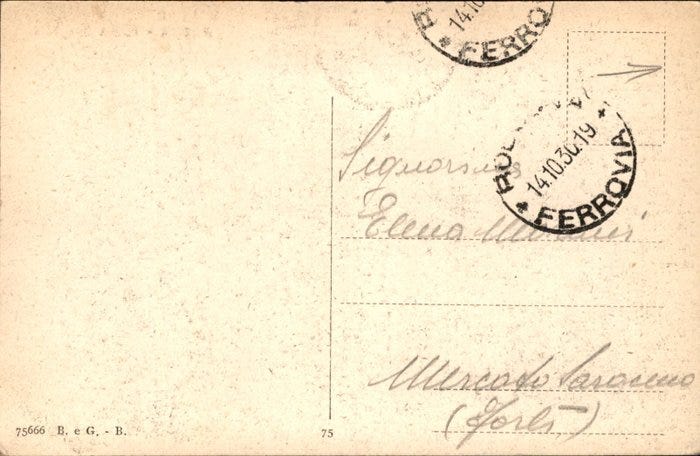 14.10
+ FERRO
14.10.30.19
+ FERROVIA +
Signorina
Elena
Mercato Saraceno
(Forlì)
75666 B. e G. - B.
75